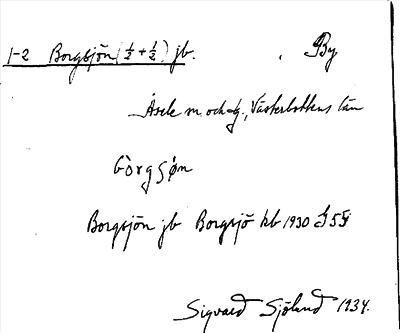 1-2 Borgsjön (½+½) jb. By
Åsele s:n och -g., Västerbottens län
Borgsjön jb Borgsjö kb 1930
Sigvard Sjölund 1934.